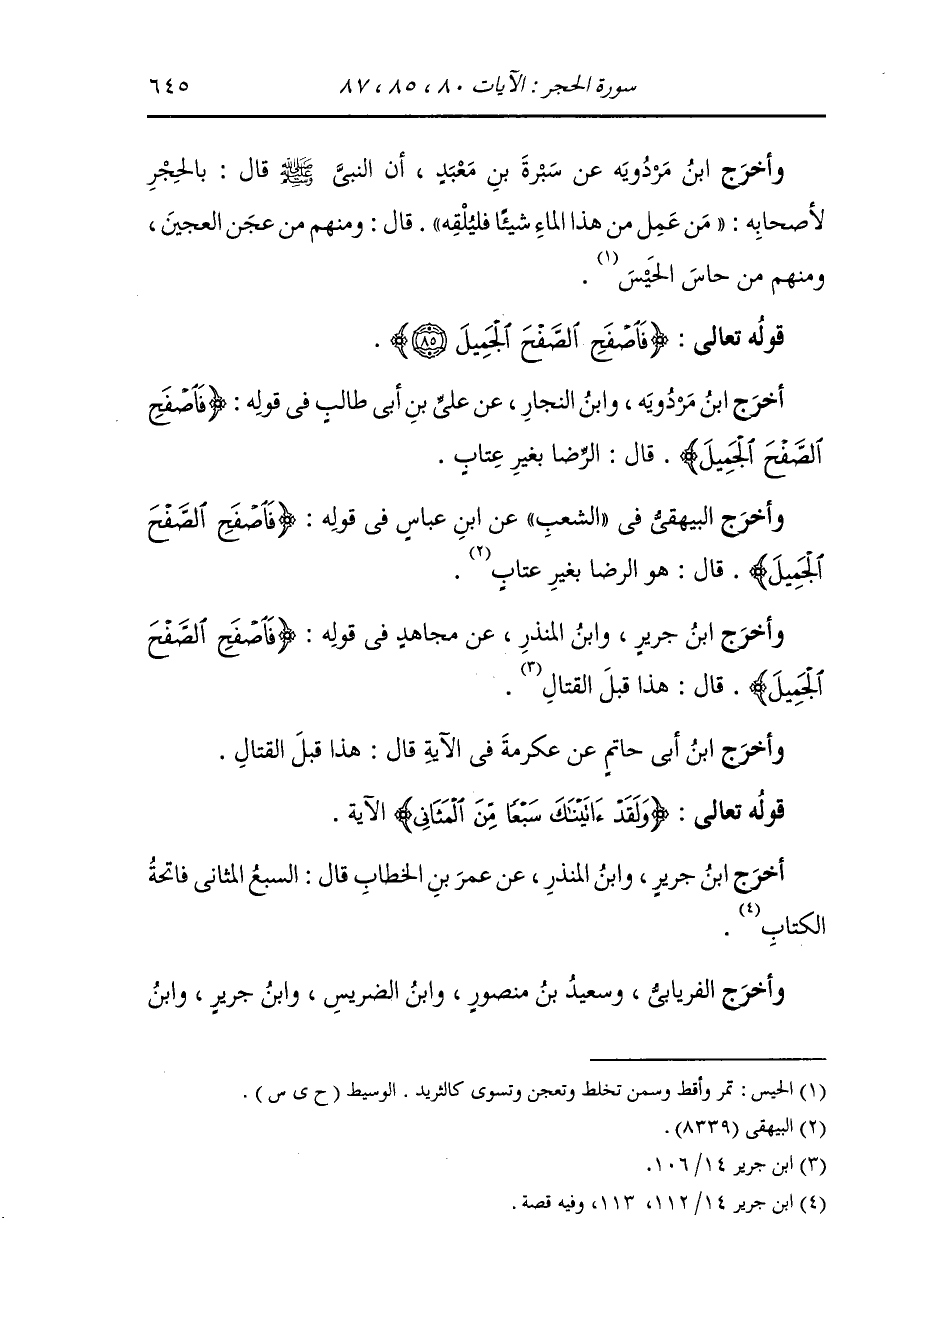 سورة الحجر : الآيات ٨٠، ٨٥، ٨٧ ٦٤٥
وأخرَج ابنُ مَرْدُويَه عن سَبْرةَ بنِ مَعْبَدٍ ، أن النبىَّ ﷺ قال : بالحِجْرِ
لأصحابِه : « مَن عَمِل من هذا الماءِ شيئًا فليُلْقِه» . قال : ومنهم من عجَن العجينَ ،
ومنهم من حاسَ الحَيْسَ(١) .
قولُه تعالى : ﴿فَٱصْفَحِ ٱلصَّفْحَ ٱلْجَمِيلَ ٨٥﴾ .
أخرَج ابنُ مَرْدُويَه ، وابنُ النجارِ ، عن علىِّ بنِ أبى طالبٍ فى قولِه : ﴿فَٱصْفَحِ
ٱلصَّفْحَ ٱلْجَمِيلَ﴾ . قال : الرِّضا بغيرِ عِتابٍ .
وأخرَج البيهقىُّ فى «الشعبِ» عن ابنِ عباسٍ فى قولِه : ﴿فَٱصْفَحِ ٱلصَّفْحَ
ٱلْجَمِيلَ﴾ . قال : هو الرضا بغيرِ عتابٍ(٢) .
وأخرَج ابنُ جريرٍ ، وابنُ المنذرِ ، عن مجاهدٍ فى قولِه : ﴿فَٱصْفَحِ ٱلصَّفْحَ
ٱلْجَمِيلَ﴾ . قال : هذا قبلَ القتالِ(٣) .
وأخرَج ابنُ أبى حاتمٍ عن عكرمةَ فى الآيةِ قال : هذا قبلَ القتالِ .
قولُه تعالى : ﴿وَلَقَدْ ءَاتَيْنَٰكَ سَبْعًا مِّنَ ٱلْمَثَانِى﴾ الآية .
أخرَج ابنُ جريرٍ ، وابنُ المنذرِ ، عن عمرَ بنِ الخطابِ قال : السبعُ المثانى فاتحةُ
الكتابِ(٤) .
وأخرَج الفريابىُّ ، وسعيدُ بنُ منصورٍ ، وابنُ الضريسِ ، وابنُ جريرٍ ، وابنُ
(١) الحيس : تمر وأقط وسمن تخلط وتعجن وتسوى كالثريد . الوسيط ( ح ى س ) .
(٢) البيهقى (٨٣٣٩) .
(٣) ابن جرير ١٤/ ١٠٦.
(٤) ابن جرير ١٤/ ١١٢، ١١٣، وفيه قصة .